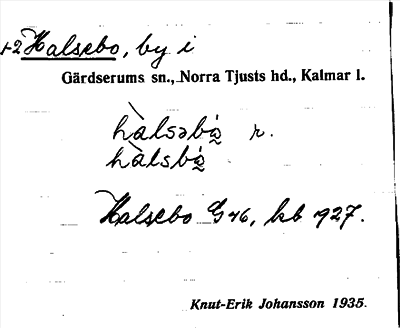 +2 Halsebo, by i
Gärdserums sn., Norra Tjusts hd., Kalmar l.
hàlsəbó̱ r.
hàlsbó̱
Halsebo G46, kb 1927.
Knut-Erik Johansson 1935.